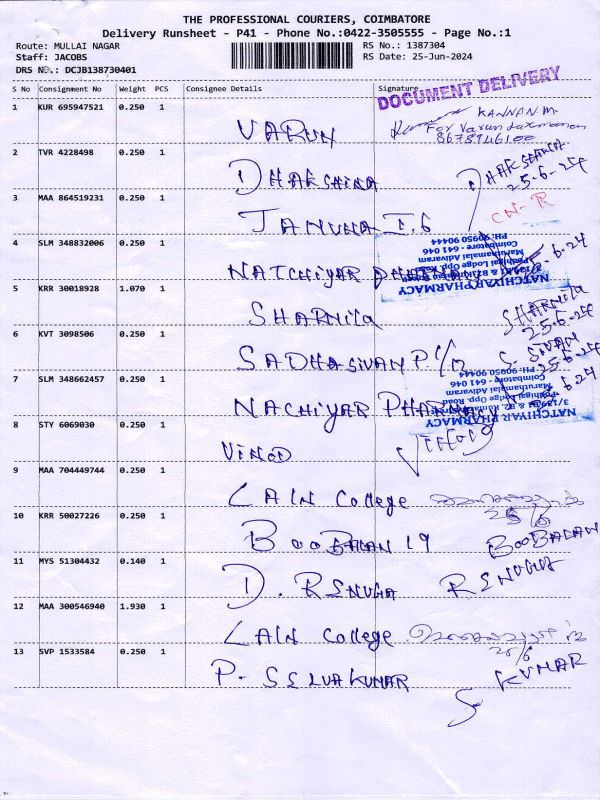 THE PROFESSIONAL COURIERS, COIMBATORE
Delivery Runsheet - P41 - Phone No.:0422-3505555 - Page No.:1
Route: MULLAI NAGAR RS No.: 1387304
Staff: JACOBS RS Date: 25-Jun-2024
DRS No.: DCJB138730401
S No Consignment No Weight PCS Consignee Details Signature
DOCUMENT DELIVERY
1 KUR 695947521 0.250 1 VARUN KANNAN M.
For Varun Laxmanan
8678946100
2 TVR 4228498 0.250 1 DHAKSHINA DHAKSHANA
25-6-24
3 MAA 864519231 0.250 1 JAMUNA I.6 CN-R
4 SLM 348832006 0.250 1 NATCHIYAR 6-24
NATCHIYAR PHARMACY
Pothigai Lodge Opp. Road
Maruthamalai Adivaram
Coimbatore - 641 046
PH:90950 90444
5 KRR 30018928 1.070 1 SHARMILA SHARMILA
25-6-24
6 KVT 3098506 0.250 1 SADHASIVAM P. S. SIVAM
25-6-24
7 SLM 348662457 0.250 1 NACHIYAR 6-24
NATCHIYAR PHARMACY
Pothigai Lodge Opp. Road
Maruthamalai Adivaram
Coimbatore - 641 046
PH:90950 90444
8 STY 6069030 0.250 1 VINOD
9 MAA 704449744 0.250 1 LAW College
25/6
10 KRR 50027226 0.250 1 BOOBALAN 19 BOOBALAN
11 MYS 51304432 0.140 1 D. RENUGA RENUGA
12 MAA 300546940 1.930 1 LAW College
25/6
13 SVP 1533584 0.250 1 P. SELVAKUMAR S KUMAR